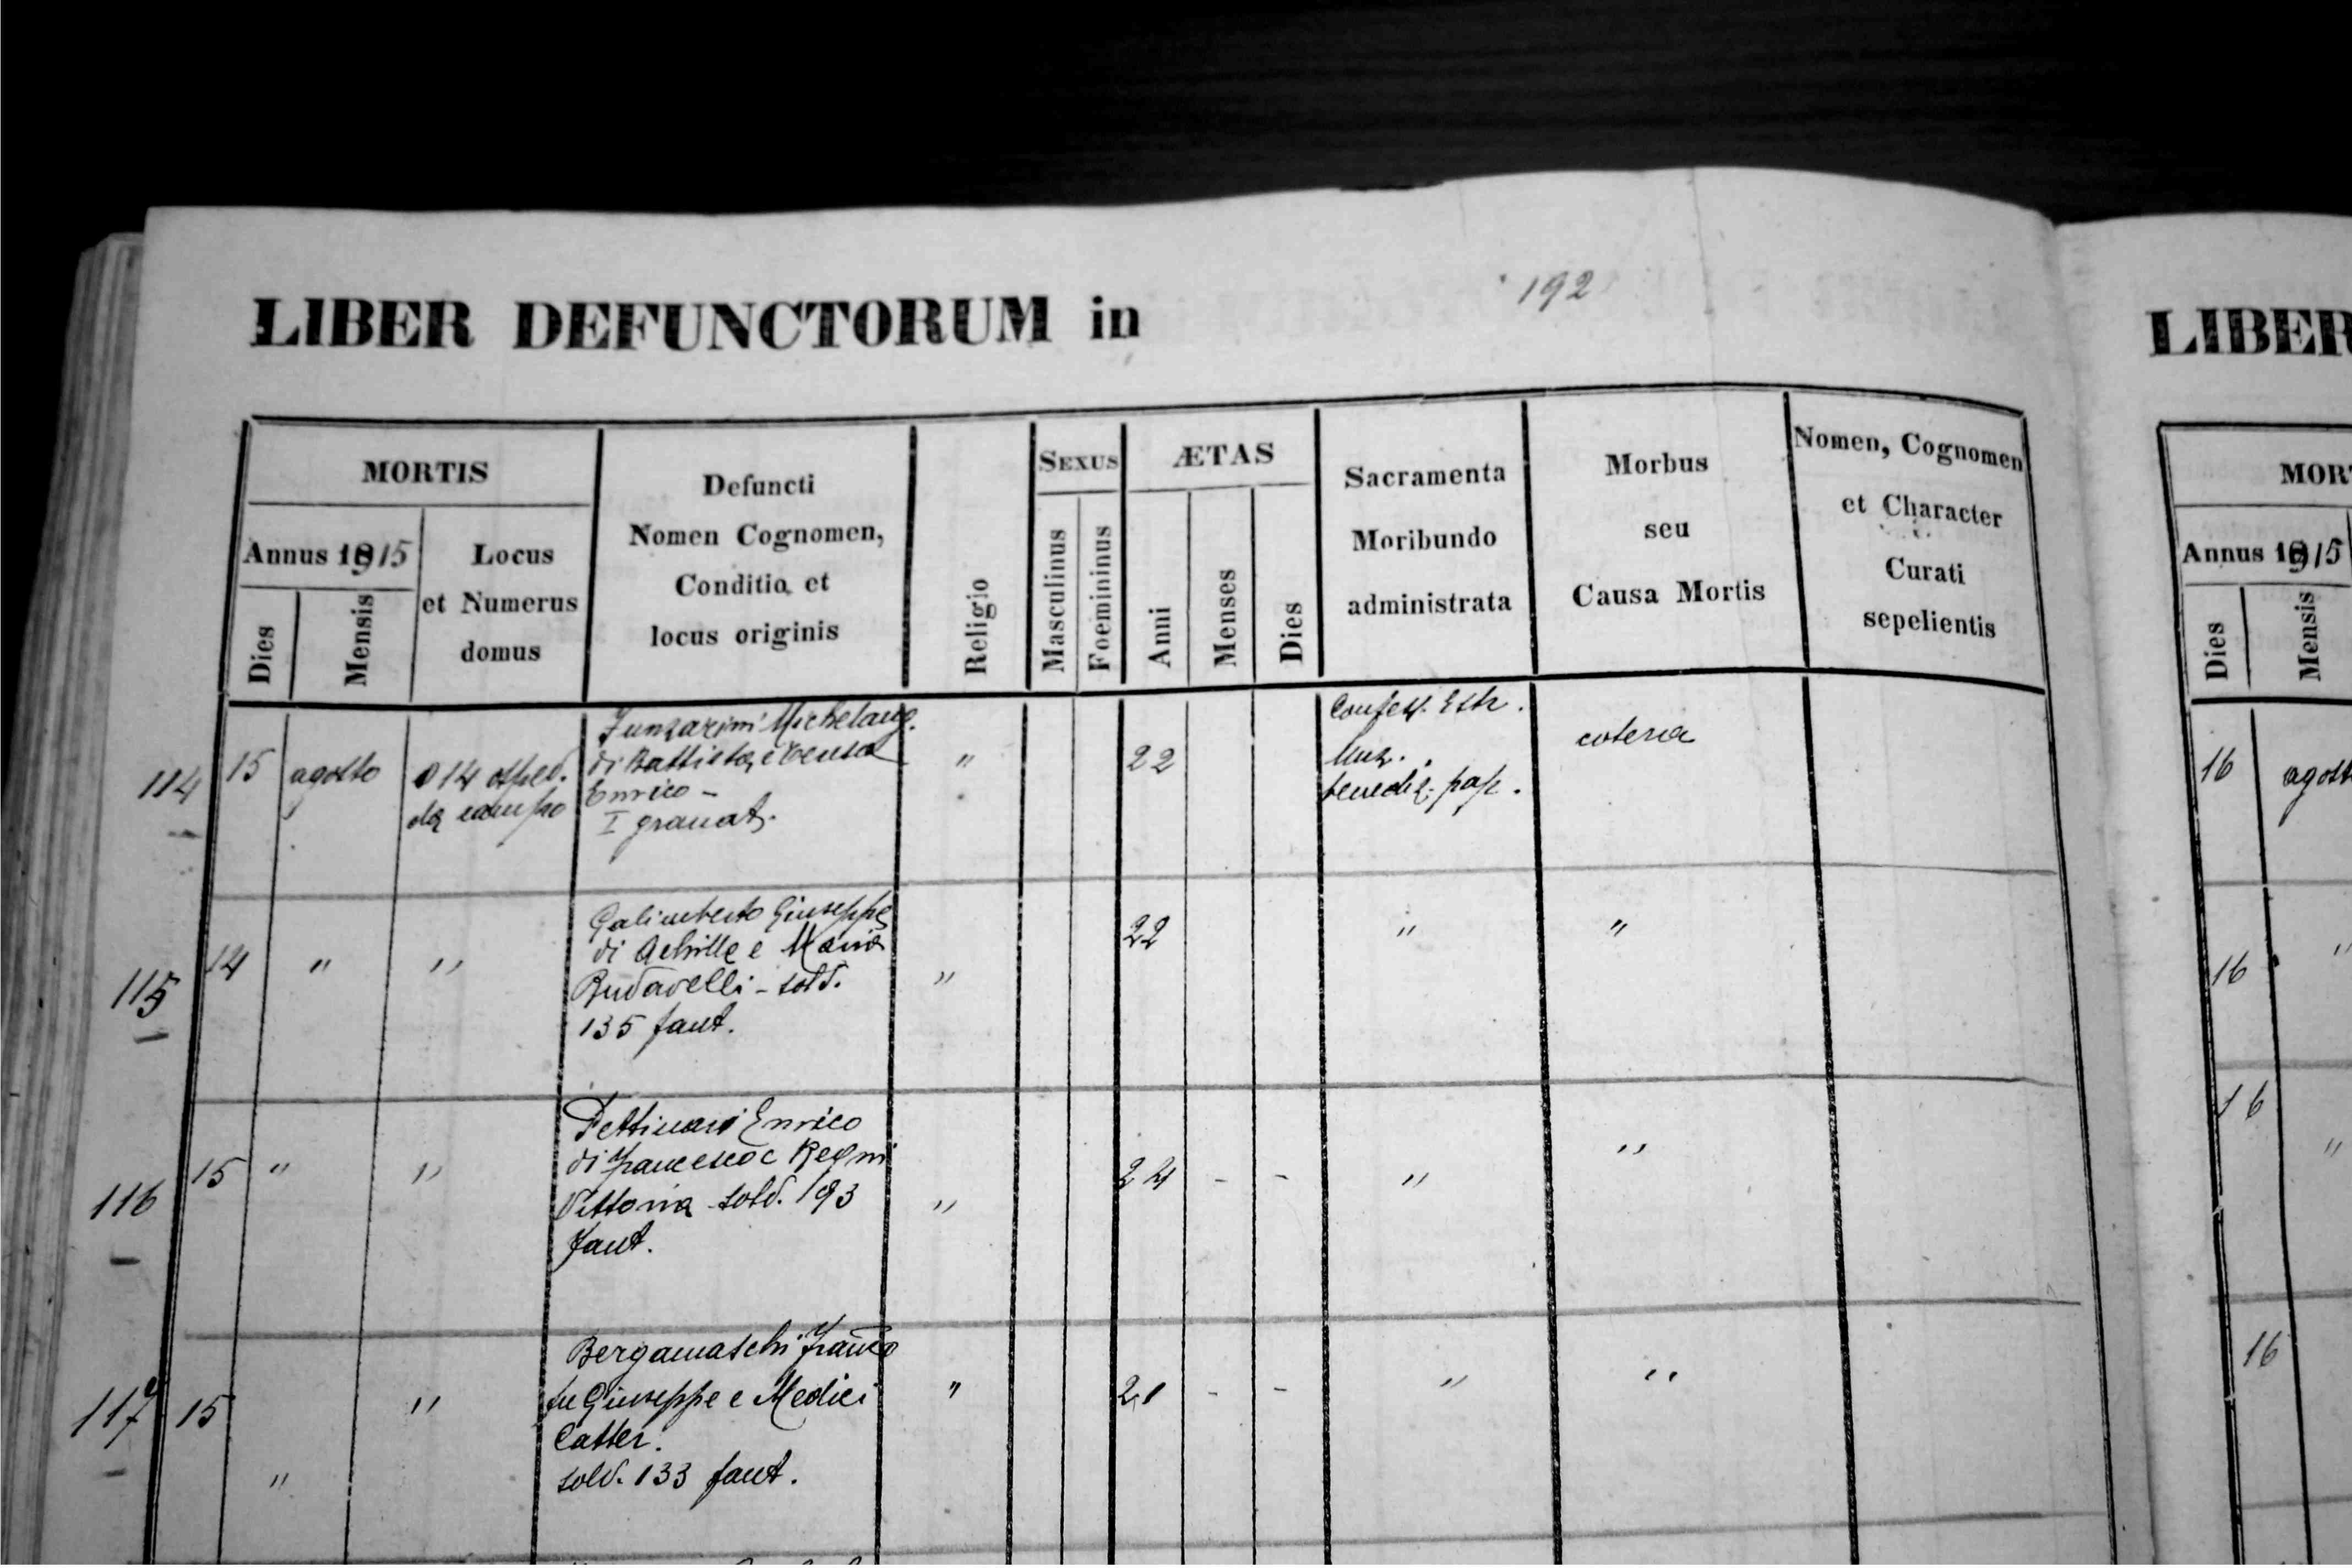 192
LIBER DEFUNCTORUM in
MORTIS
Annus 1915
Dies
Mensis
Locus
et Numerus
domus
Defuncti
Nomen Cognomen,
Conditio et
locus originis
Religio
SEXUS
Masculinus
Foemininus
ÆTAS
Anni
Menses
Dies
Sacramenta
Moribundo
administrata
Morbus
seu
Causa Mortis
Nomen, Cognomen
et Character
Curati
sepelientis
114
15
agosto
014 osped.
da campo
Michelang.
di Battista e
Enrico -
I granat.
"
22
Confess. Estr.
Unz.
benediz. pap.
colera
115
14
"
"
Galimberto Giuseppe
di Achille e Maria
- sold.
135 fant.
"
22
"
"
116
15
"
"
Pettinari Enrico
di Francesco e Regni
Vittoria sold. 193
fant.
"
24
-
-
"
"
117
15
"
"
Bergamaschi Franco
fu Giuseppe e Medici
Catter.
sold. 133 fant.
"
21
-
-
"
"
LIBER
MORT
Annus 1915
Dies
Mensis
16
agost
16
"
16
"
16